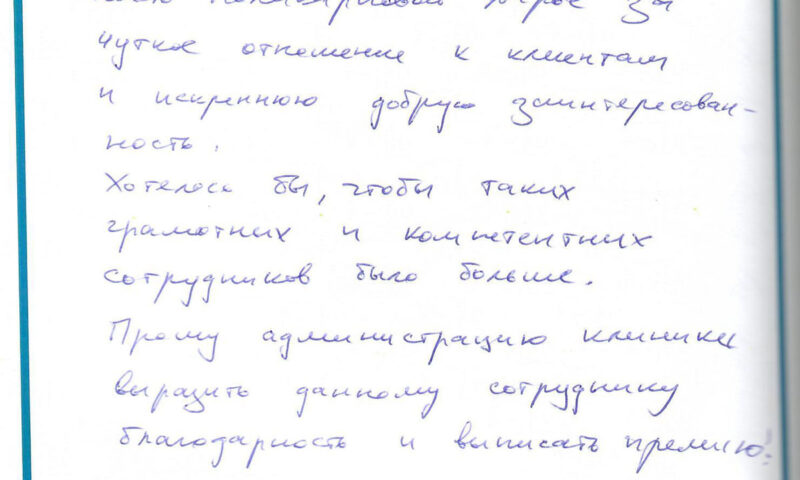 за
чуткое отношение к клиентам
и искреннюю добрую заинтересован-
ность.
Хотелось бы, чтобы таких
грамотных и компетентных
сотрудников было больше.
Прошу администрацию клиники
выразить данному сотруднику
благодарность и выписать премию!